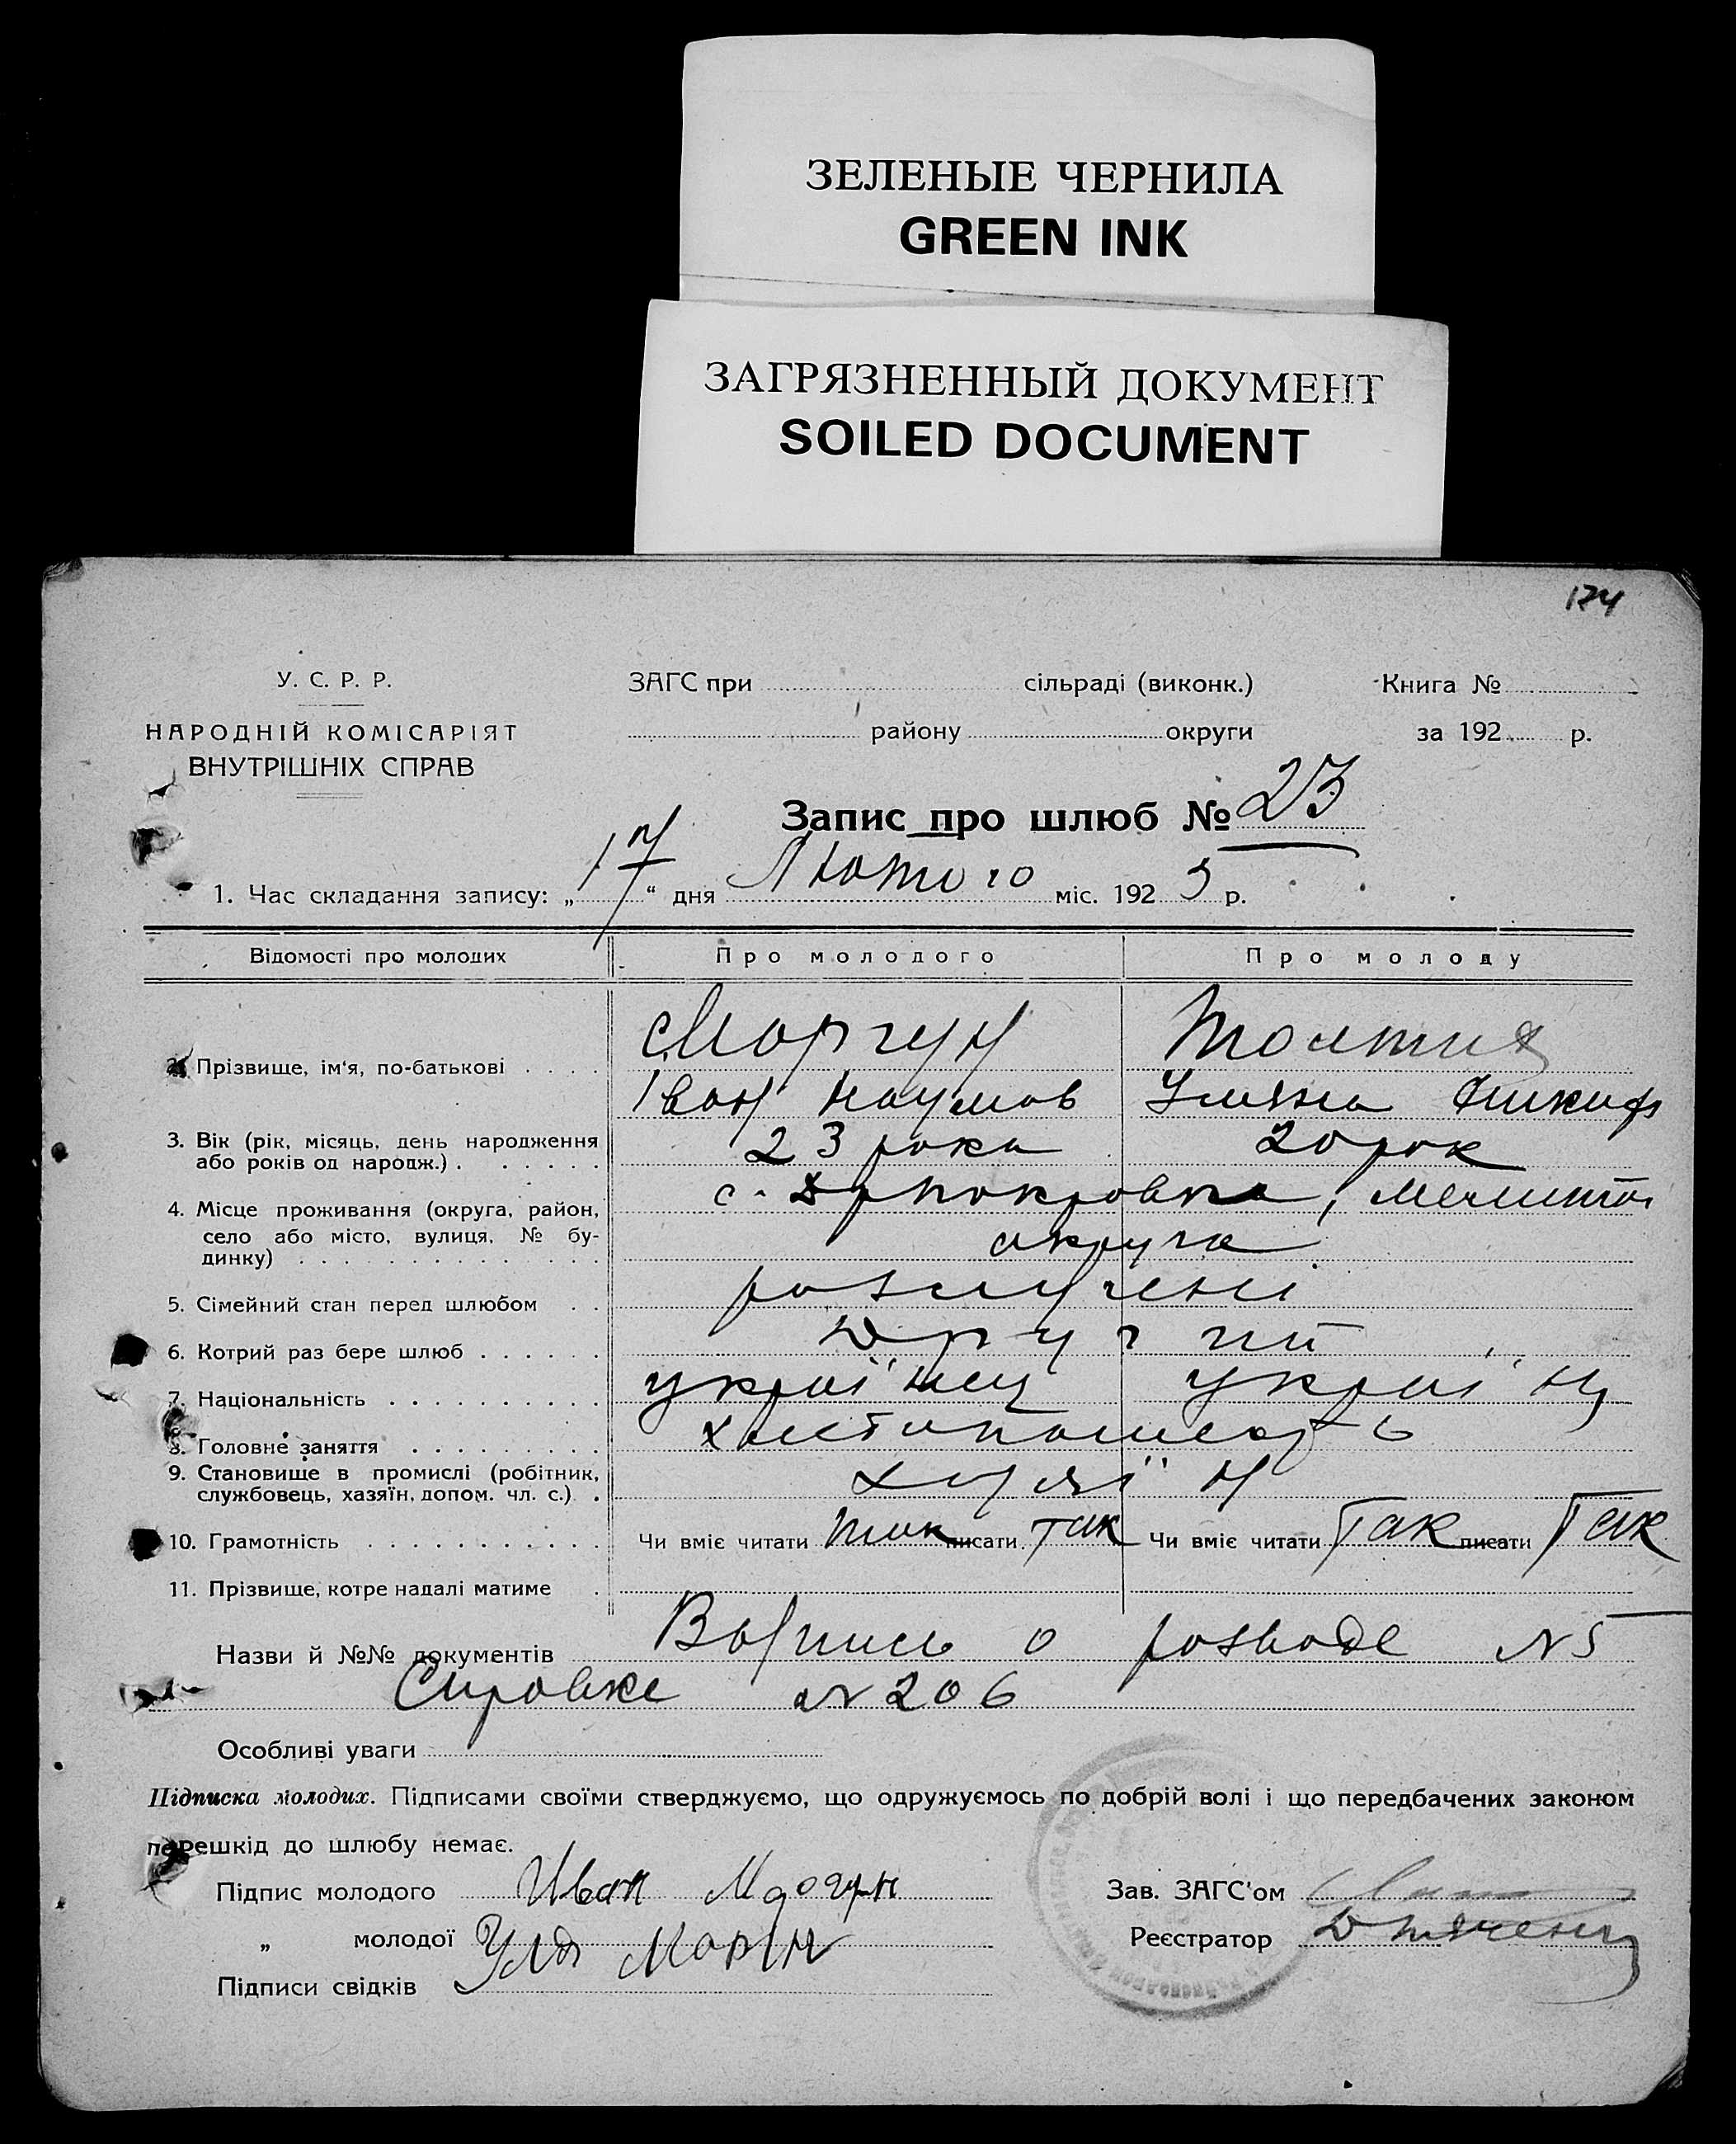 ЗЕЛЕНЫЕ ЧЕРНИЛА
GREEN INK
ЗАГРЯЗНЕННЫЙ ДОКУМЕНТ
SOILED DOCUMENT
174
У. С. Р. Р.
НАРОДНІЙ КОМІСАРІЯТ
ВНУТРІШНІХ СПРАВ
ЗАГС при сільраді (виконк.)
району округи
Книга №
за 192 р.
Запис про шлюб № 23
1. Час складання запису: „17“ дня Лютого міс. 1925 р.
Відомості про молодих Про молодого Про молоду
2. Прізвище, ім'я, по-батькові . . . . Моргун
Іван Наумов Уляна
3. Вік (рік, місяць, день народження
або років од народж.) . . . . . . 23 рока 20 рок
4. Місце проживання (округа, район,
село або місто, вулиця, № бу-
динку) с. округа
5. Сімейний стан перед шлюбом . . розлучені
6. Котрий раз бере шлюб . . . . . . Другий
7. Національність . . . . . . . . . . українец україн
8. Головне заняття . . . . . . . . .
9. Становище в промислі (робітник,
службовець, хазяїн, допом. чл. с.) .
10. Грамотність . . . . . . . . . . . Чи вміє читати так писати так Чи вміє читати Так писати Так
11. Прізвище, котре надалі матиме .
Назви й №№ документів о розводе N 5
Справке N 206
Особливі уваги
Підписка молодих. Підписами своїми стверджуємо, що одружуємось по добрій волі і що передбачених законом
перешкід до шлюбу немає.
Підпис молодого Иван Моргун
„ молодої Уля
Підписи свідків
Зав. ЗАГС'ом
Реєстратор